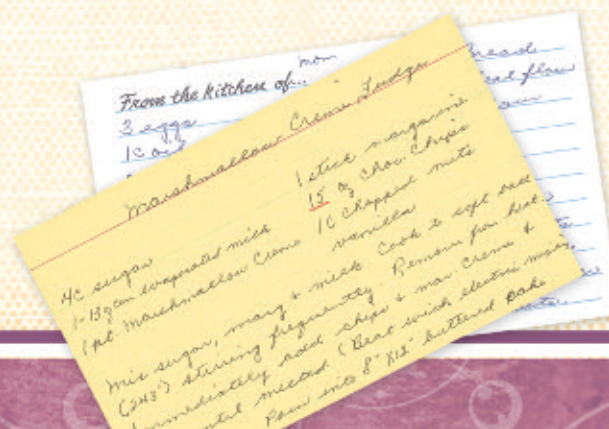 mom
From the kitchen of...
3 eggs
1 C oil
Bread
Marshmallow Creme Fudge
4C sugar
1-13 oz can evaporated milk
1 pt. Marshmallow Creme
1 stick margarine
15 oz choc. chips
1C chopped nuts
vanilla
Mix sugar, marg & milk. Cook to soft ball
(243°) stirring frequently. Remove from heat.
Immediately add chips & mar. creme &
until melted. (Beat with electric mixer)
Pour into 8" X 12" buttered cake